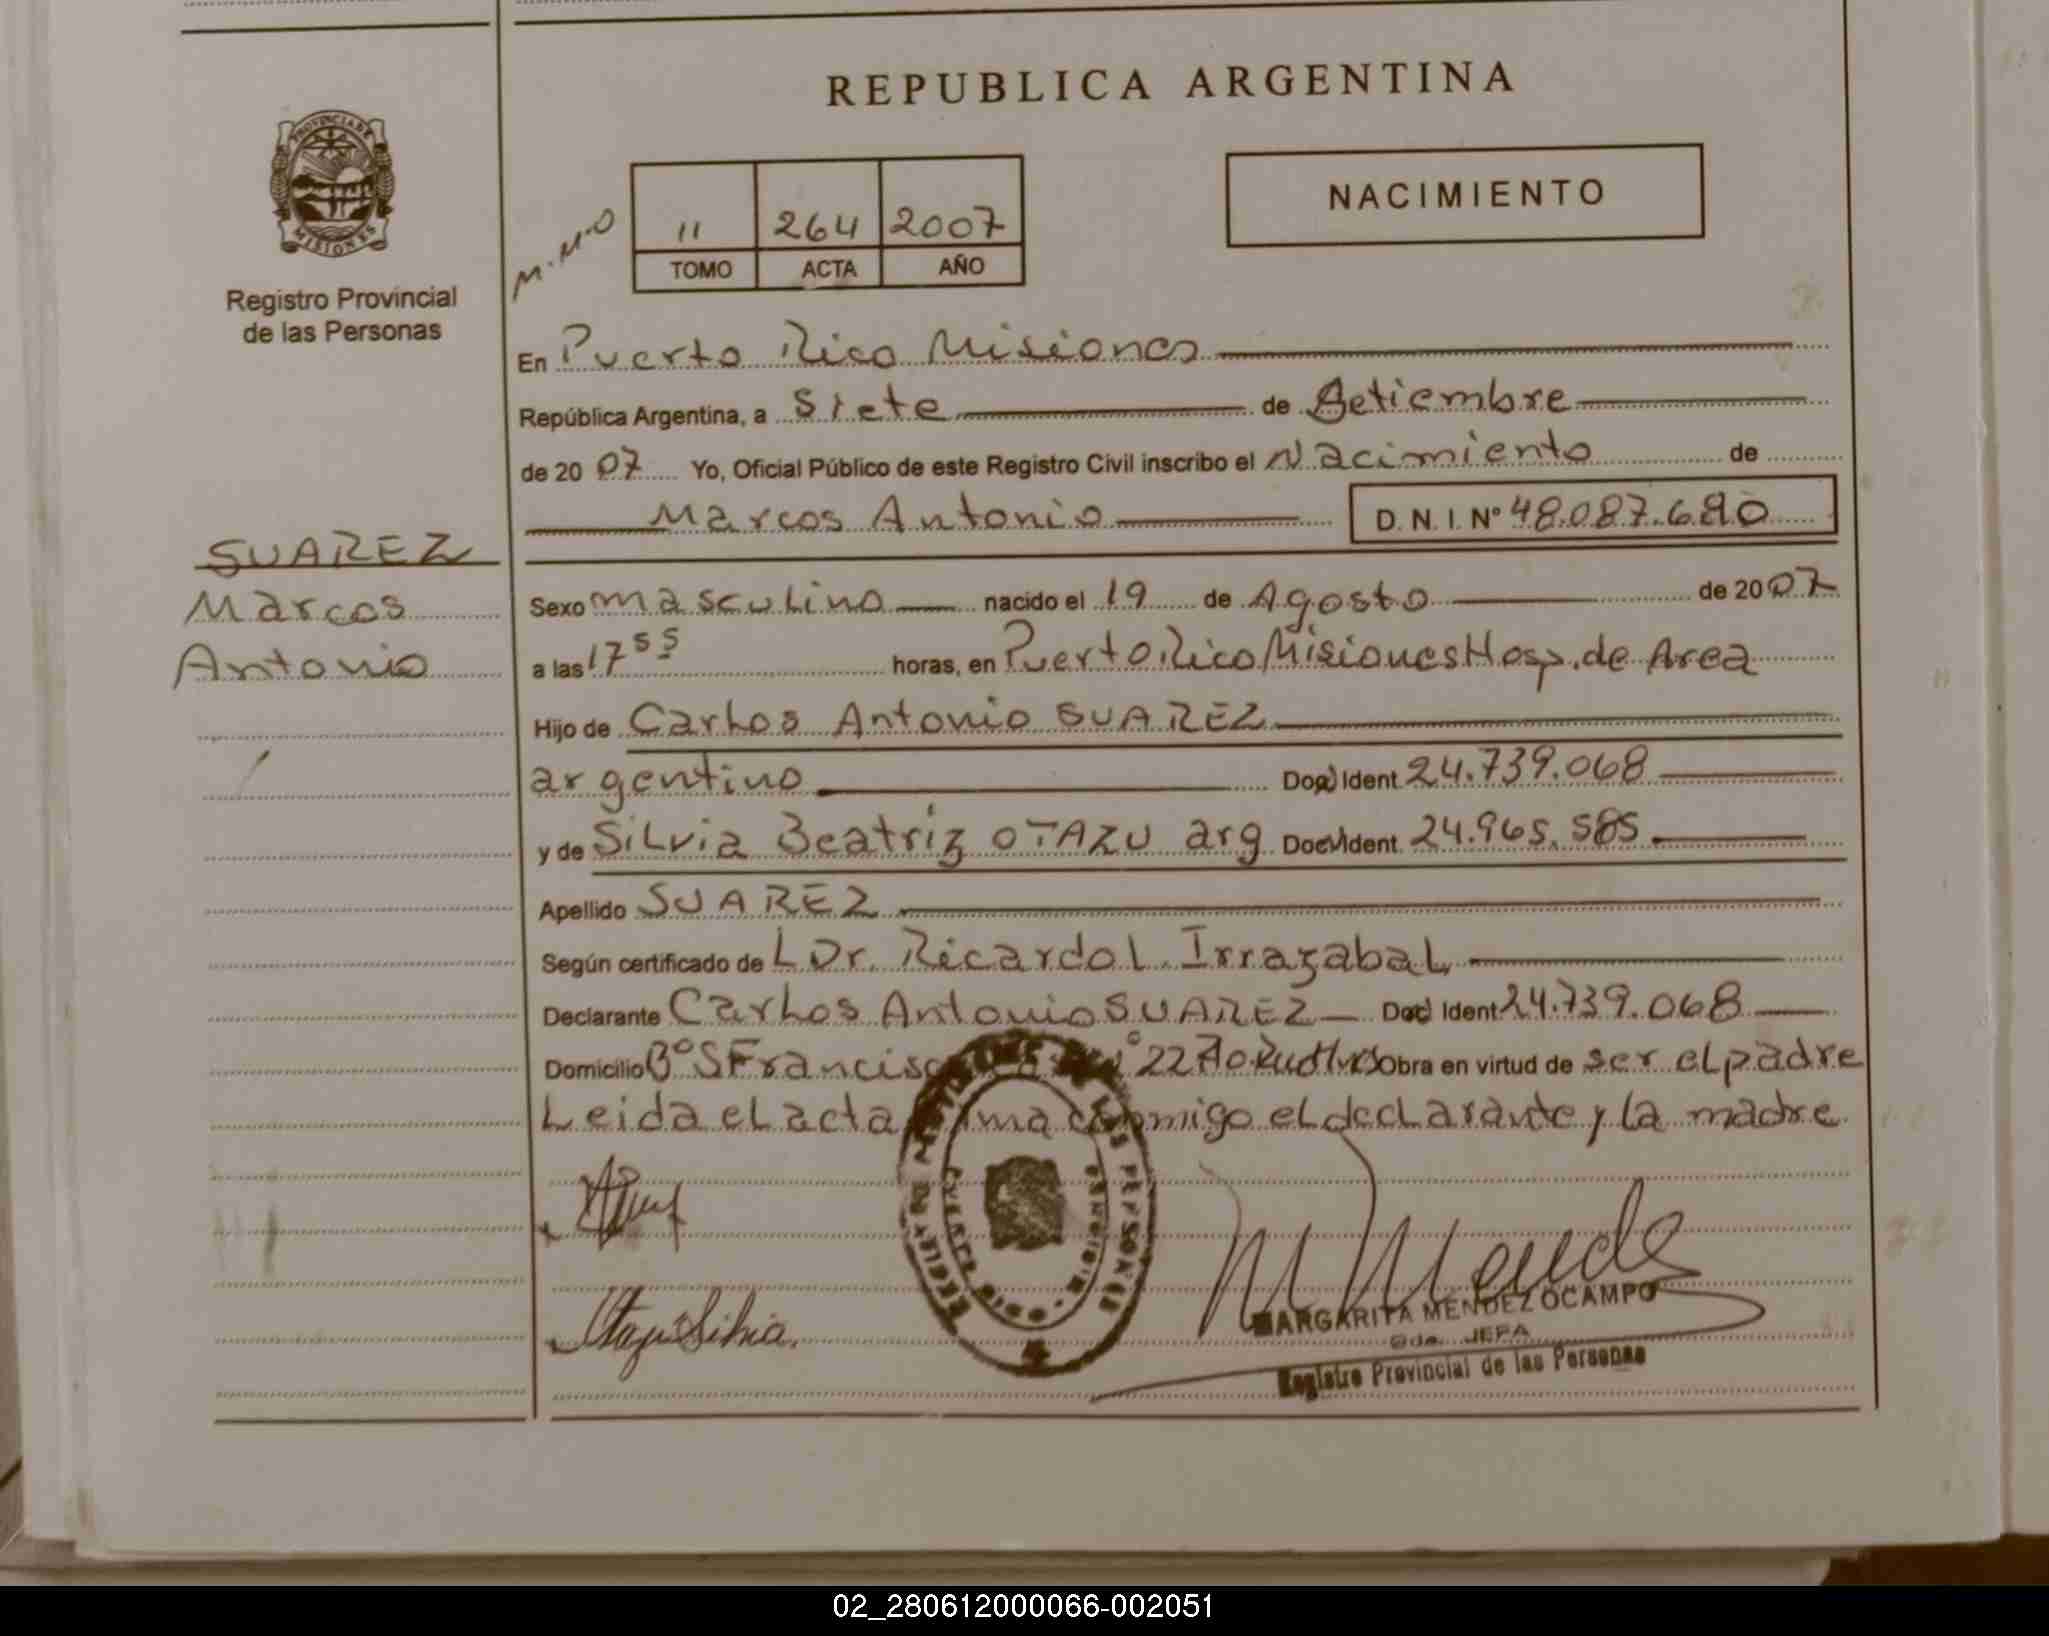 REPUBLICA ARGENTINA
PROVINCIA DE
MISIONES
Registro Provincial
de las Personas
M.M.O
11 264 2007
TOMO ACTA AÑO
NACIMIENTO
En Puerto Rico Misiones
República Argentina, a Siete de Setiembre
de 20 07 Yo, Oficial Público de este Registro Civil inscribo el Nacimiento de
Marcos Antonio D. N. I. Nº 48.087.680
SUAREZ
Marcos
Antonio
Sexo masculino nacido el 19 de Agosto de 20 07
a las 17 55 horas, en Puerto Rico Misiones Hosp. de Area
Hijo de Carlos Antonio SUAREZ
argentino Doc. Ident. 24.739.068
y de Silvia Beatriz OTAZU arg Doc. Ident. 24.965.585
Apellido SUAREZ
Según certificado de L Dr. Ricardo L. Irrazabal
Declarante Carlos Antonio SUAREZ Doc. Ident. 24.739.068
Domicilio Bº S Francisco 22 Obra en virtud de ser el padre
Leida el acta firma conmigo el declarante y la madre
Otazu Silvia.
M Mende
MARGARITA MENDEZ OCAMPO
Registro Provincial de las Personas
02_280612000066-002051